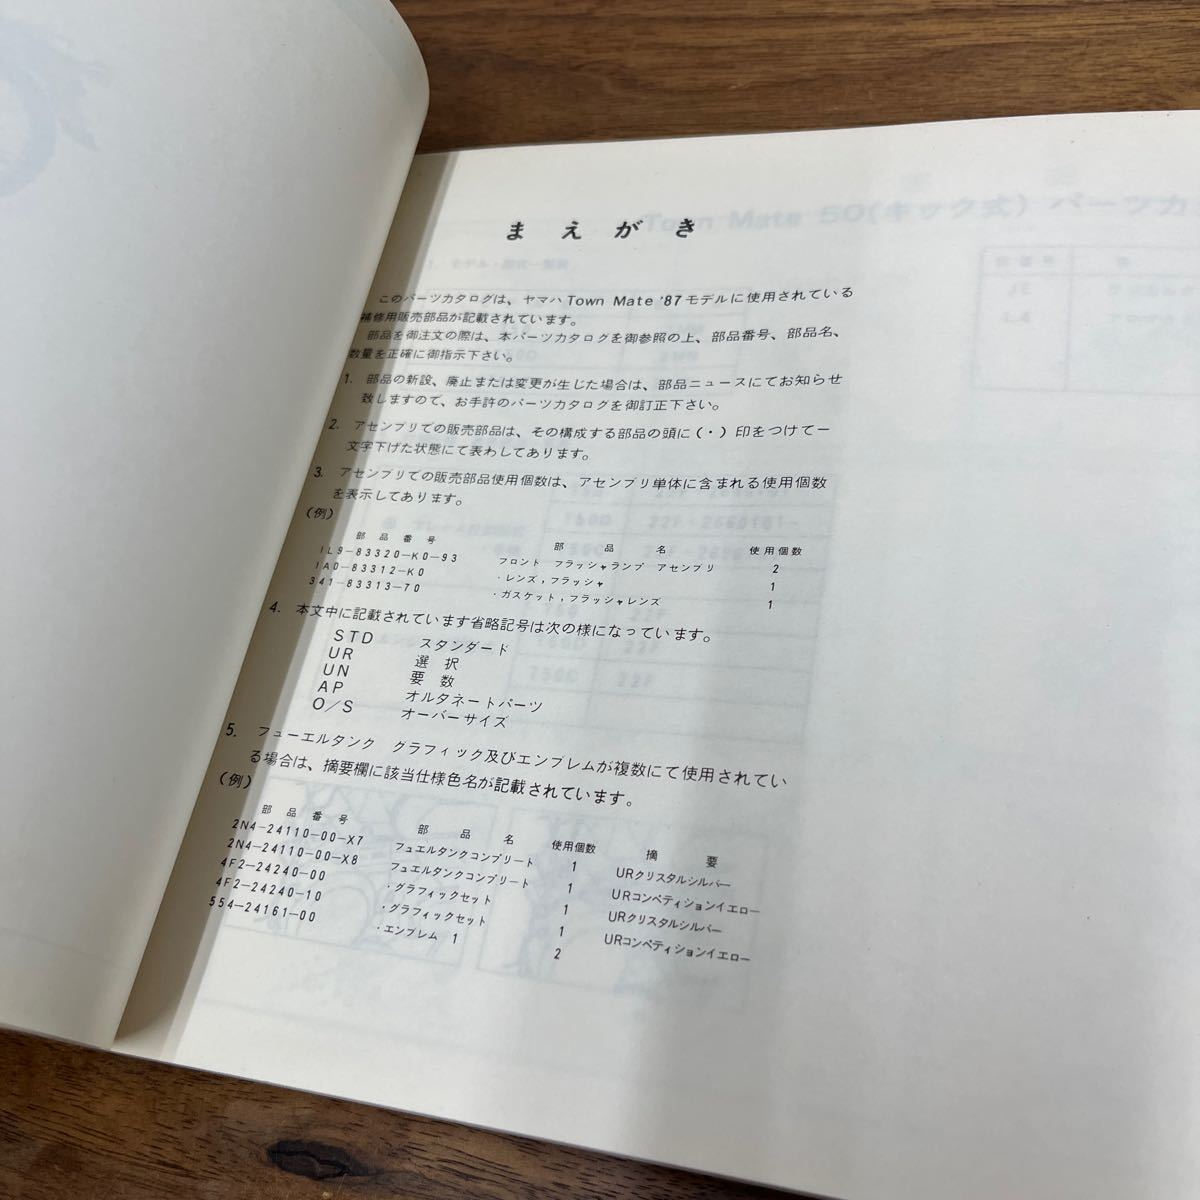 まえがき
このパーツカタログは、ヤマハ Town Mate '87 モデルに使用されている
補修用販売部品が記載されています。
部品を御注文の際は、本パーツカタログを御参照の上、部品番号、部品名、
数量を正確に御指示下さい。
1. 部品の新設、廃止または変更が生じた場合は、部品ニュースにてお知らせ
致しますので、お手許のパーツカタログを御訂正下さい。
2. アセンブリでの販売部品は、その構成する部品の頭に(・)印をつけて一
文字下げた状態にて表わしてあります。
3. アセンブリでの販売部品使用個数は、アセンブリ単体に含まれる使用個数
を表示してあります。
(例)
部品番号 部品名 使用個数
1L9-83320-K0-93 フロント フラッシャランプ アセンブリ 2
1A0-83312-K0 ・レンズ,フラッシャ 1
341-83313-70 ・ガスケット,フラッシャレンズ 1
4. 本文中に記載されています省略記号は次の様になっています。
STD スタンダード
UR 選択
UN 要数
AP オルタネートパーツ
O/S オーバーサイズ
5. フューエルタンク グラフィック及びエンブレムが複数にて使用されてい
る場合は、摘要欄に該当仕様色名が記載されています。
(例)
部品番号 部品名 使用個数 摘要
2N4-24110-00-X7 フュエルタンクコンプリート 1 URクリスタルシルバー
2N4-24110-00-X8 フュエルタンクコンプリート 1 URコンペティションイエロー
4F2-24240-00 ・グラフィックセット 1 URクリスタルシルバー
4F2-24240-10 ・グラフィックセット 1 URコンペティションイエロー
554-24161-00 ・エンブレム 1 2
Town Mate 50(キック式) パーツカ